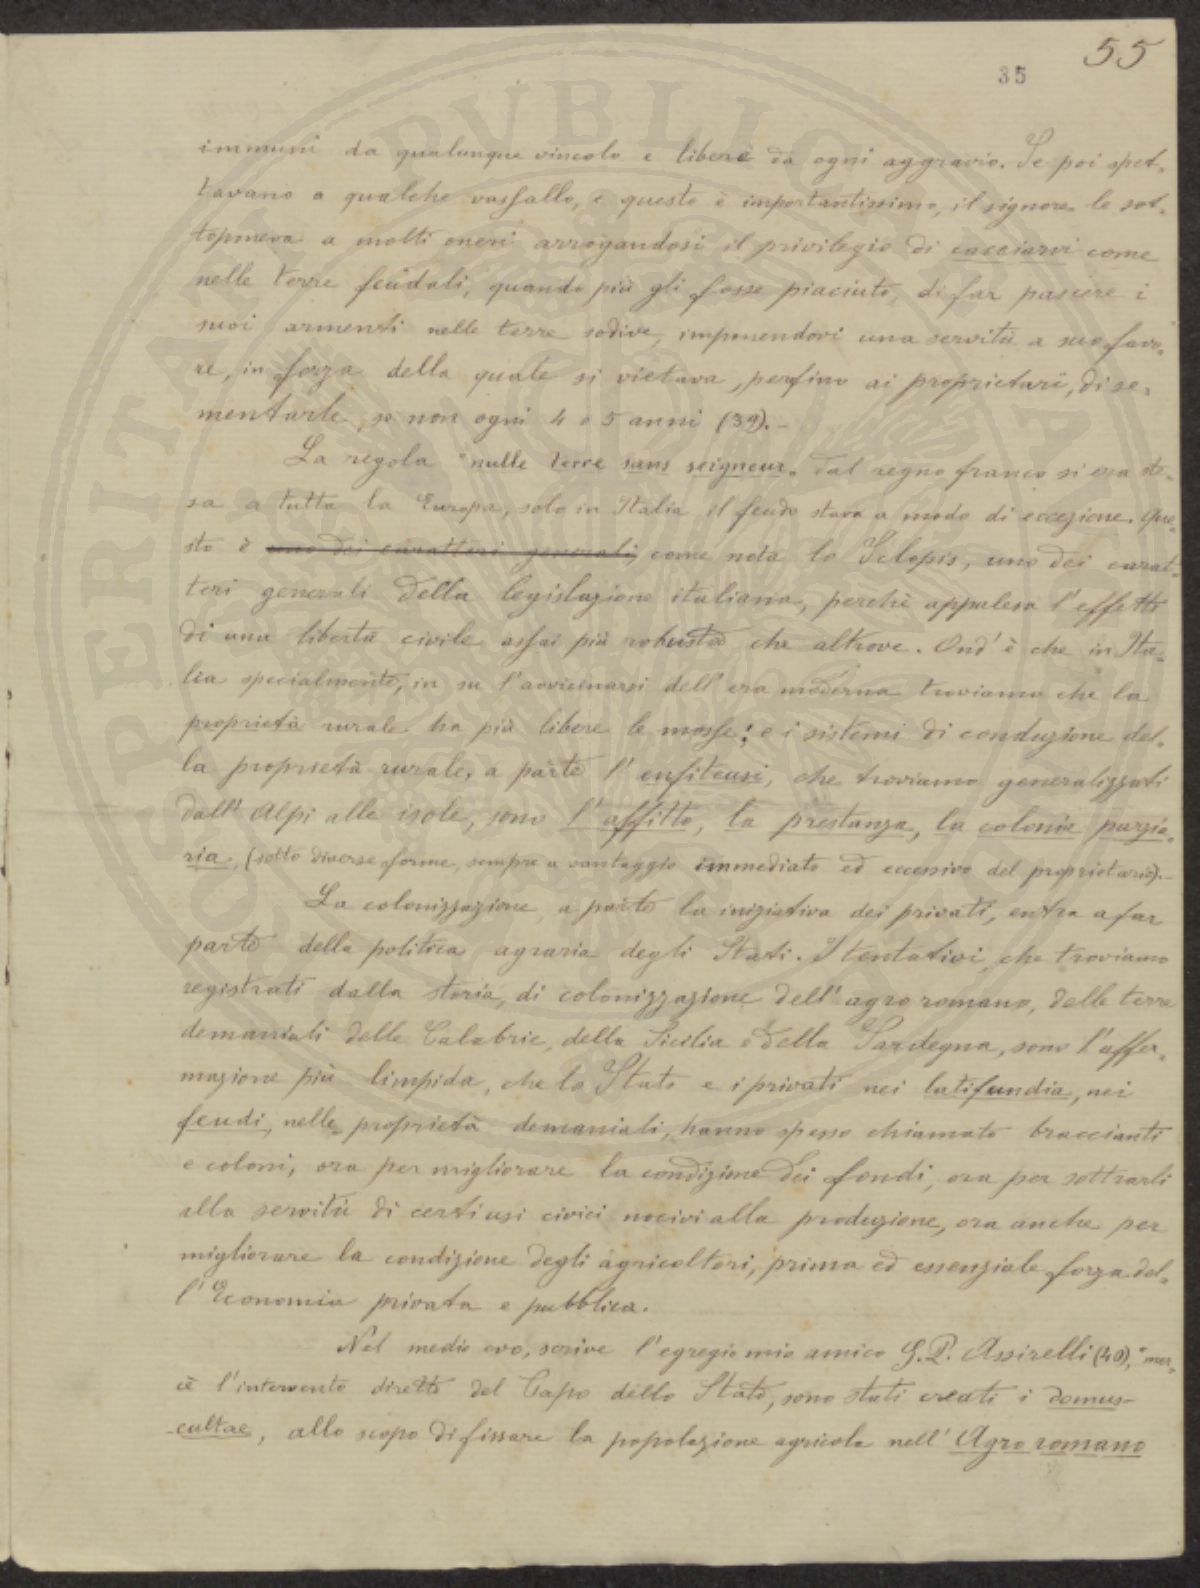 55
35
immuni da qualunque vincolo e libere da ogni aggravio. Se poi spet-
tavano a qualche vassallo, e questo è importantissimo, il signore le sot-
toponeva a molti oneri arrogandosi il privilegio di cacciarvi come
nelle terre feudali, quando più gli fosse piaciuto, di far pascere i
suoi armenti nelle terre sodive, imponendovi una servitù a suo favo-
re, in forza della quale si vietava, perfino ai proprietarî, di se-
mentarle, se non ogni 4 o 5 anni (39).-
La regola "nulle terre sans seigneur" dal regno franco si era ste-
sa a tutta la Europa, solo in Italia il feudo stava a modo di eccezione. Que-
sto è uno dei caratteri generali, come nota lo Sclopis, uno dei carat-
teri generali della legislazione italiana, perchè appalesa l'effetto
di una libertà civile assai più robusta che altrove. Ond'è che in Ita-
lia specialmente, in su l'avvicinarsi dell'era moderna troviamo che la
proprietà rurale ha più libere le mosse; e i sistemi di conduzione del-
la proprietà rurale, a parte l'enfiteusi, che troviamo generalizzati
dall'Alpi alle isole, sono l'affitto, la prestanza, la colonia parzia-
ria, (sotto diverse forme, sempre a vantaggio immediato ed eccessivo del proprietario).-
La colonizzazione, a parte la iniziativa dei privati, entra a far
parte della politica agraria degli Stati. I tentativi, che troviamo
registrati dalla storia, di colonizzazione dell'agro romano, delle terre
demaniali delle Calabrie, della Sicilia e della Sardegna, sono l'affer-
mazione più limpida, che lo Stato e i privati nei latifundia, nei
feudi, nelle proprietà demaniali, hanno spesso chiamato braccianti
e coloni, ora per migliorare la condizione dei fondi, ora per sottrarli
alla servitù di certi usi civici nocivi alla produzione, ora anche per
migliorare la condizione degli agricoltori, prima ed essenziale forza del-
l'Economia privata e pubblica.
Nel medio evo, scrive l'egregio mio amico G. P. Assirelli (40), "mer-
cè l'intervento diretto del Capo dello Stato, sono stati creati i domus-
-cultae, allo scopo di fissare la popolazione agricola nell'Agro romano